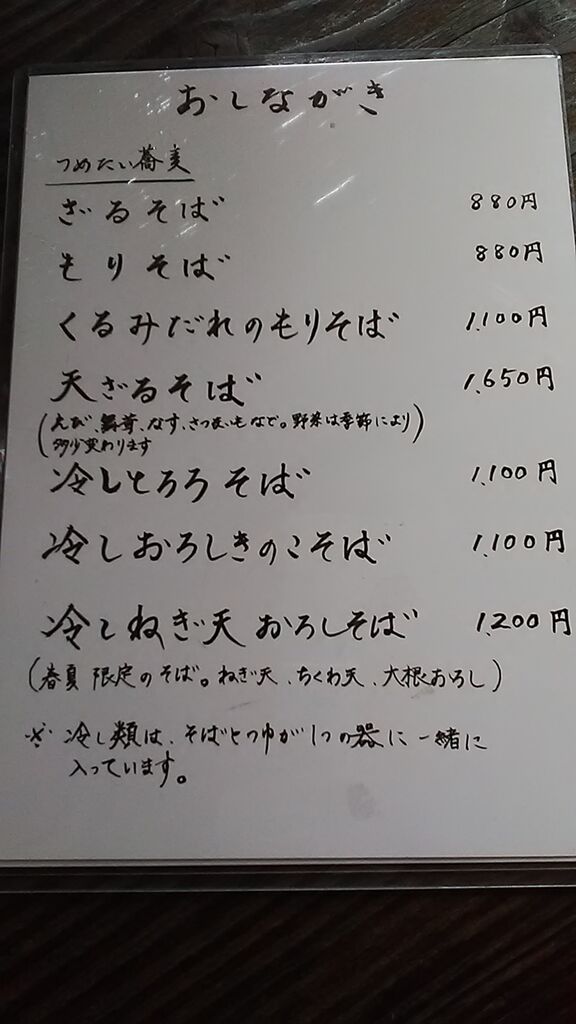 おしながき
つめたい蕎麦
ざるそば 880円
もりそば 880円
くるみだれのもりそば 1,100円
天ざるそば 1,650円
(えび、舞茸、なす、さつまいもなど。野菜は季節により
多少変わります)
冷しとろろそば 1,100円
冷しおろしきのこそば 1,100円
冷しねぎ天おろしそば 1,200円
(春夏限定のそば。ねぎ天、ちくわ天、大根おろし)
※冷し類は、そばとつゆが1つの器に一緒に
入っています。